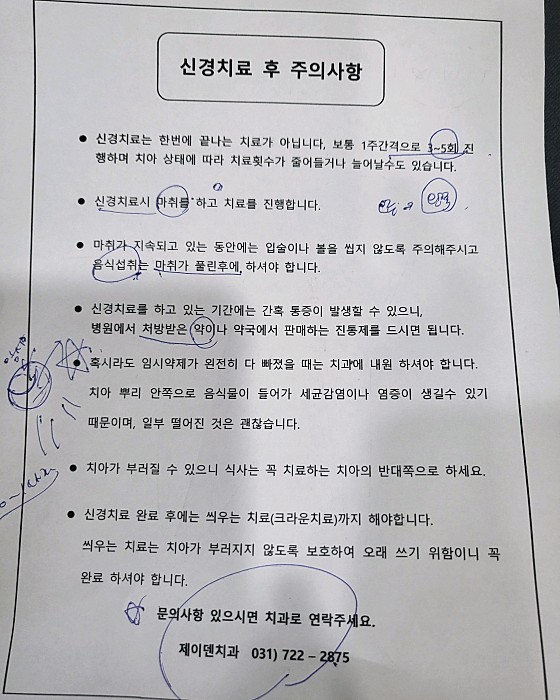 신경치료 후 주의사항
● 신경치료는 한번에 끝나는 치료가 아닙니다, 보통 1주간격으로 3~5회 진
행하며 치아 상태에 따라 치료횟수가 줄어들거나 늘어날수도 있습니다.
● 신경치료시 마취를 하고 치료를 진행합니다.
● 마취가 지속되고 있는 동안에는 입술이나 볼을 씹지 않도록 주의해주시고
음식섭취는 마취가 풀린후에 하셔야 합니다.
● 신경치료를 하고 있는 기간에는 간혹 통증이 발생할 수 있으니,
병원에서 처방받은 약이나 약국에서 판매하는 진통제를 드시면 됩니다.
● 혹시라도 임시약제가 완전히 다 빠졌을 때는 치과에 내원 하셔야 합니다.
치아 뿌리 안쪽으로 음식물이 들어가 세균감염이나 염증이 생길수 있기
때문이며, 일부 떨어진 것은 괜찮습니다.
● 치아가 부러질 수 있으니 식사는 꼭 치료하는 치아의 반대쪽으로 하세요.
● 신경치료 완료 후에는 씌우는 치료(크라운치료)까지 해야합니다.
씌우는 치료는 치아가 부러지지 않도록 보호하여 오래 쓰기 위함이니 꼭
완료 하셔야 합니다.
문의사항 있으시면 치과로 연락주세요.
제이덴치과 031) 722 – 2875